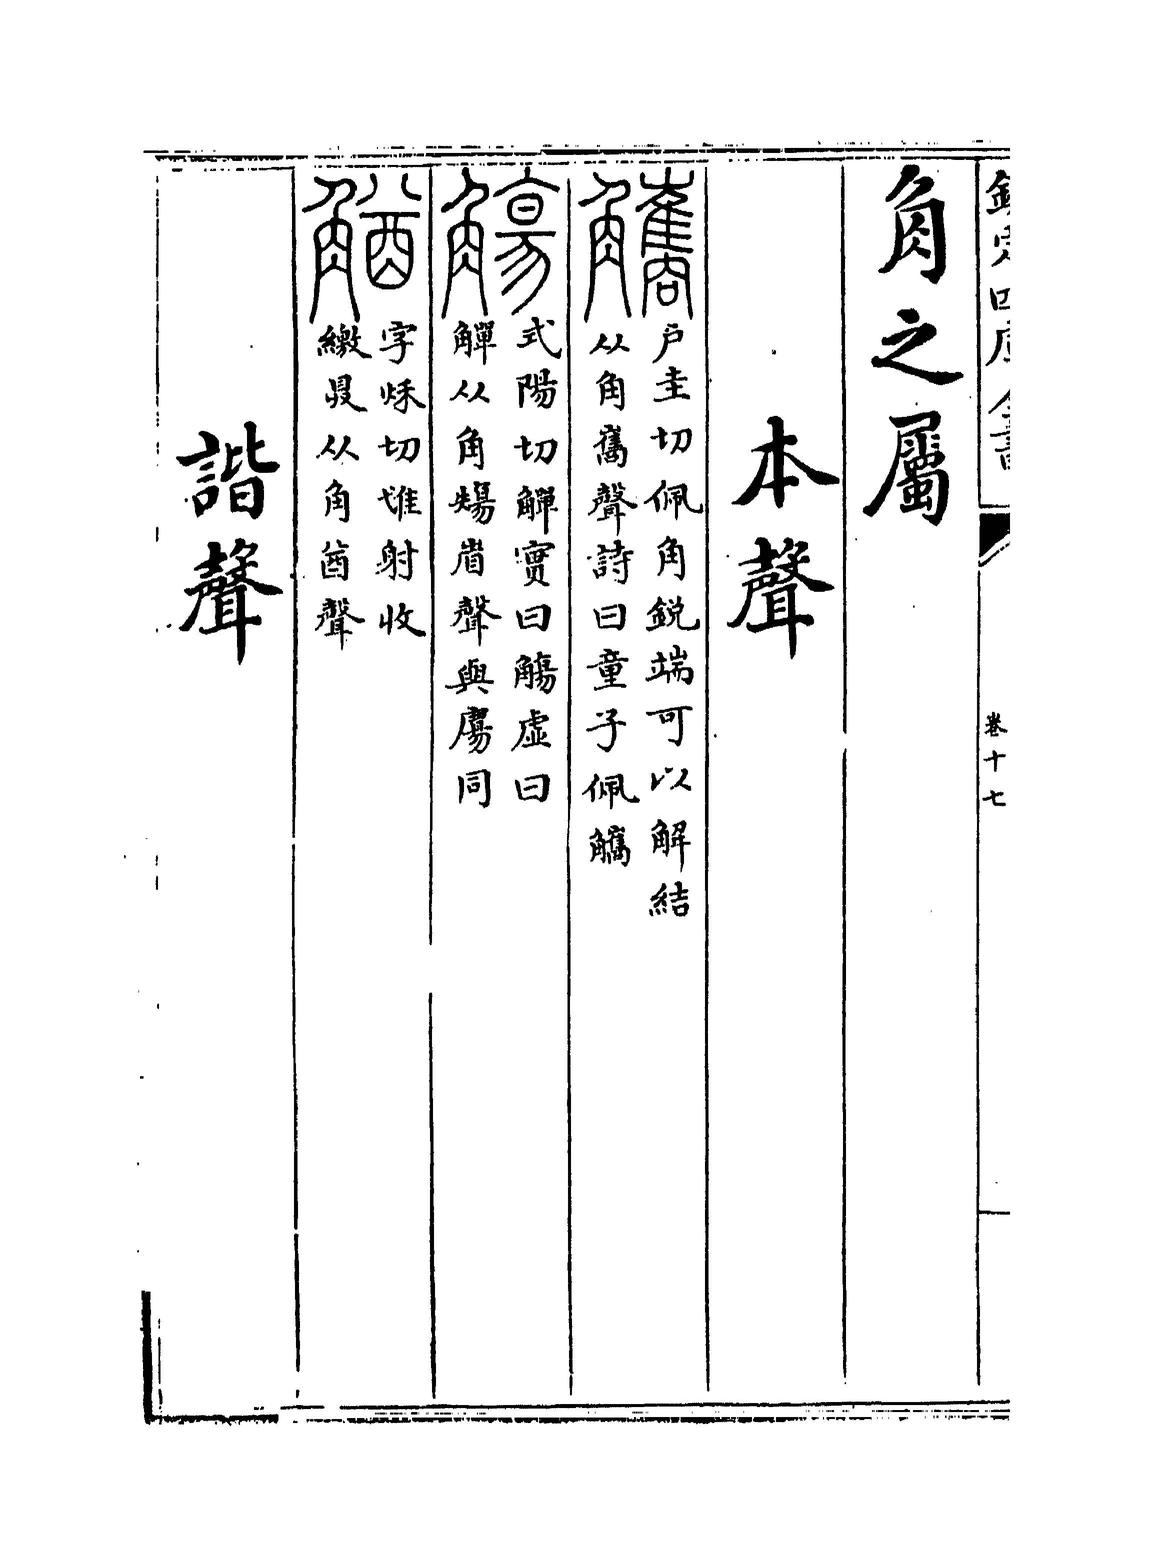 欽定四庫全書
卷十七
角之屬
本聲
觿
户圭切佩角鋭端可以解結
从角巂聲詩曰童子佩觿
觴
式陽切觶實曰觴虛曰
觶从角𥏻省聲與同
字秌切惟射收
繳具从角酋聲
諧聲